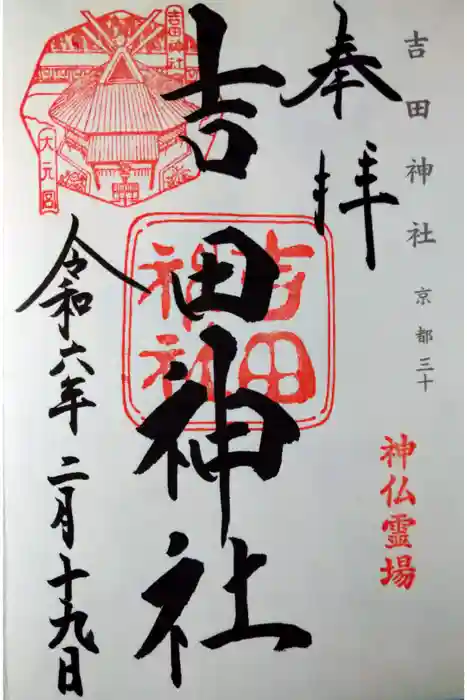 吉田神社 京都三十
神仏霊場
奉拝
吉田神社
吉田神社
吉田神社
大元宮
令和六年二月十九日